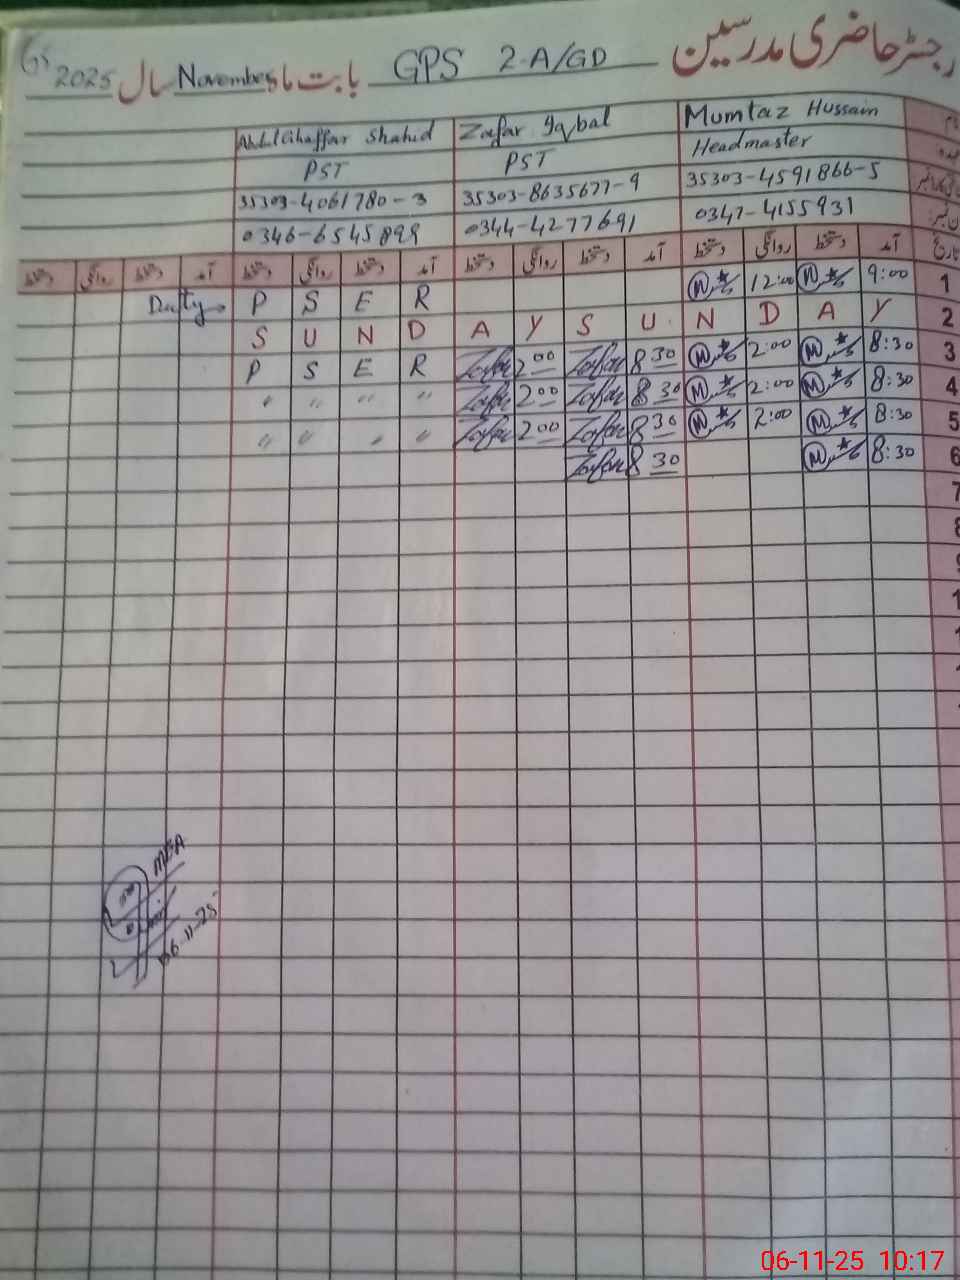 رجسٹر حاضری مدرسین GPS 2-A/GD بابت ماہ November سال 2025
Mumtaz Hussain Zafar Iqbal Abdul Ghaffar Shahid
Headmaster PST PST
35303-4591866-5 35303-8635677-9 35303-4061780-3
0347-4155931 0344-4277691 0346-6545899
تاریخ آمد دستخط روانگی دستخط آمد دستخط روانگی دستخط آمد دستخط روانگی دستخط آمد دستخط روانگی دستخط
Duty → P S E R M 12:00 M 9:00 1
S U N D A Y S U N D A Y 2
P S E R Zafar 2 00 Zafar 8 30 M 2:00 M 8:30 3
" " " " Zafar 2 00 Zafar 8 30 M 2:00 M 8:30 4
" " " " Zafar 2 00 Zafar 8 30 M 2:00 M 8:30 5
Zafar 8 30 M 8:30 6
7
8
MEA
06-11-25
06-11-25 10:17